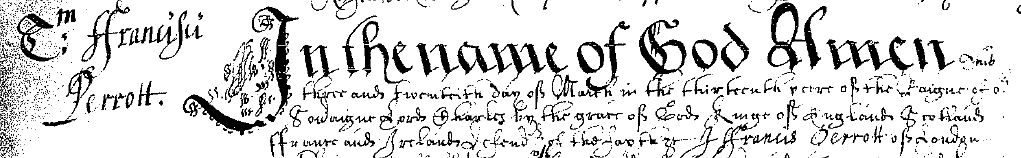 Tm: ffrancisci
Perrott.
In the name of God Amen This
three and twentith day of March in the thirteenth yere of the Raigne of or
Soveraigne Lord Charles by the grace of God Kinge of England Scotland
ffrance and Ireland defender of the faith &c I ffrancis Perrott of London